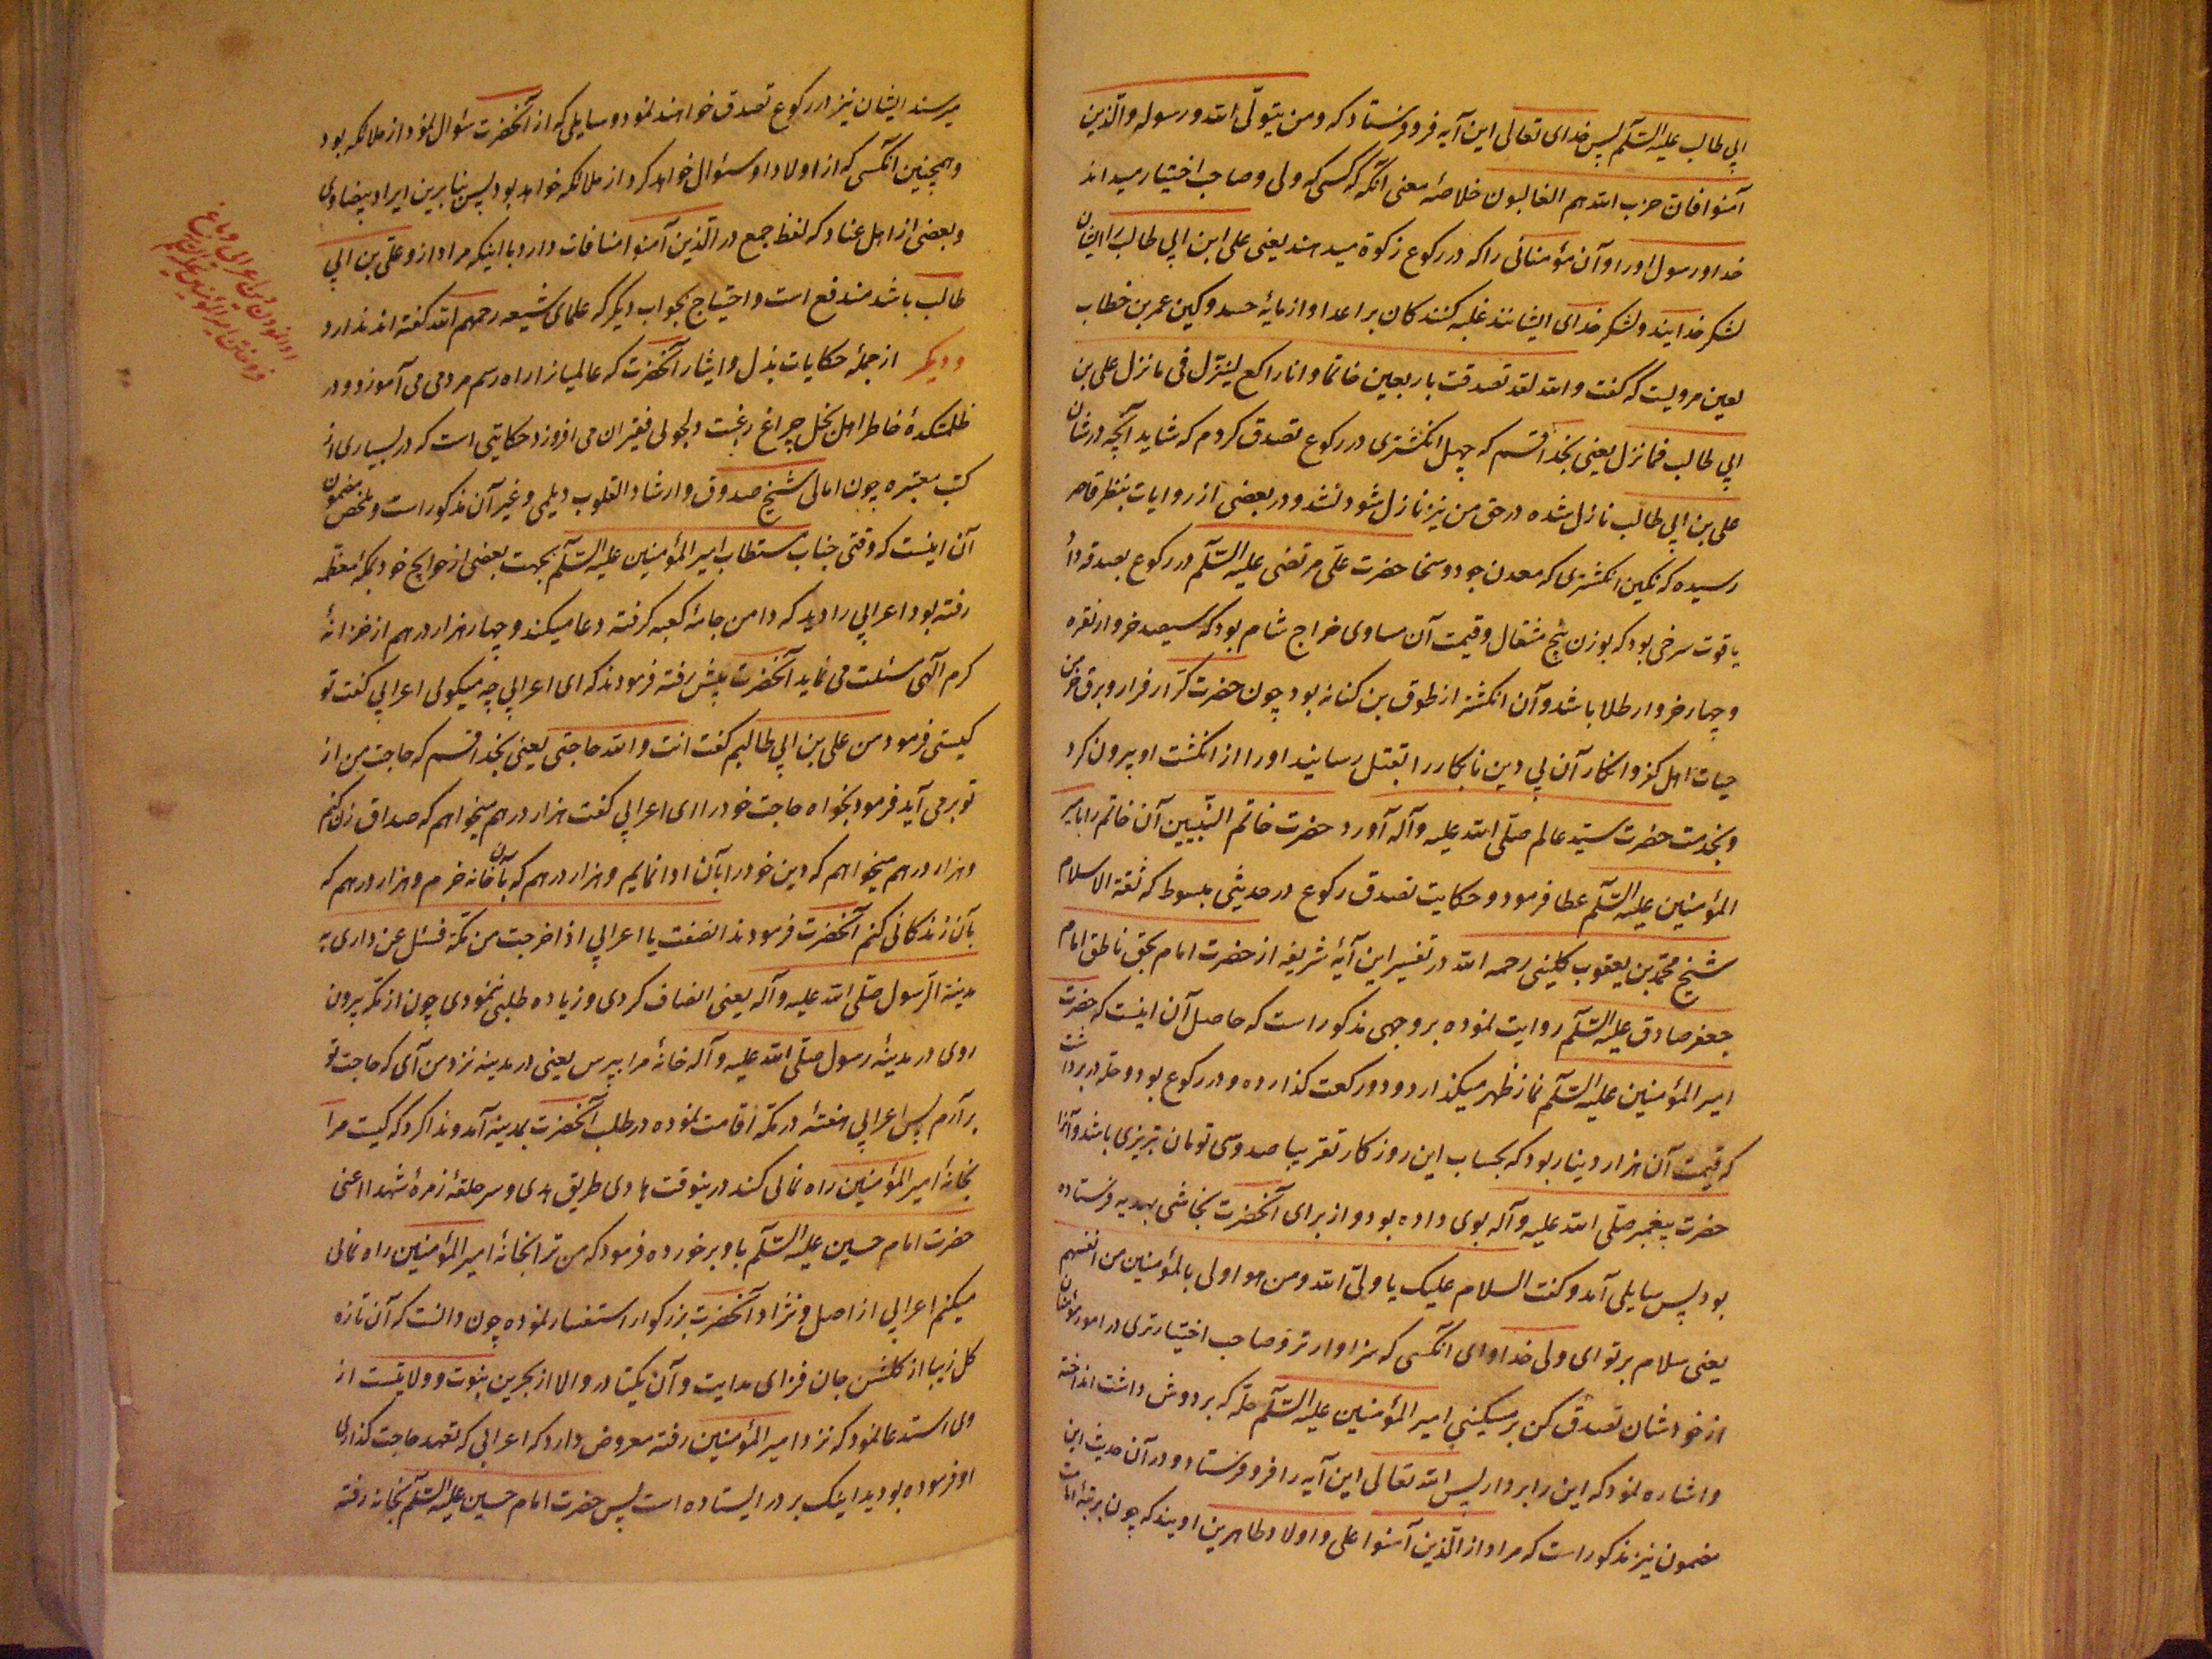 ابی طالب علیه السّلام پس خدای تعالی این آیه فرو فرستاد که و من یتولّی الله و رسوله والّذین
آمنوا فان حزب الله هم الغالبون خلاصهٔ معنی آنکه کسی که ولی و صاحب اختیار میداند
خدا و رسول او را و آن مؤمنانی را که در رکوع زکوة میدهند یعنی علی ابن ابی طالب را ایشان
لشکر خدایند و لشکر خدای ایشانند غلبه کنندکان بر اعدا و از مایهٔ حسد و کین عمر بن خطاب
لعین مرویست که گفت والله لقد تصدقت باربعین خاتما و انا راکع لینزل فی ما نزل علی بن
ابی طالب فما نزل یعنی بخدا قسم که چهل انکشتری در رکوع تصدق کردم که شاید آنچه در شان
علی بن ابی طالب نازل شده در حق من نیز نازل شود نشد و در بعضی از روایات بنظر قاصر
رسیده که نکین انکشتری که معدن جود و سخا حضرت علی مرتضی علیه السّلام در رکوع بصدقه داد
یاقوت سرخی بود که بوزن پنج مثقال و قیمت آن مساوی خراج شام بود که سیصد خروار نقره
و چهار خروار طلا باشد و آن انکشتر از طوق بن کنانه بود چون حضرت کرّار فرار و برق خرمن
حیات اهل کفر و انکار آن بی دین نابکار را بقتل رسانید او را از انکشت او بیرون کرد
و بخدمت حضرت سیّد عالم صلّی الله علیه و آله آورد حضرت خاتم النّبیین آن خاتم را بامیر
المؤمنین علیه السّلام عطا فرمود و حکایت تصدق رکوع در حدیثی مبسوط که ثقة الاسلام
شیخ محمّد بن یعقوب کلینی رحمه الله در تفسیر این آیهٔ شریفه از حضرت امام بحق ناطق امام
جعفر صادق علیه السّلام روایت نموده بر وجهی مذکور است که حاصل آن اینست که حضرت
امیر المؤمنین علیه السّلام نماز ظهر میکذارد و دو رکعت کذارده و در رکوع بود و حلّه در بر داشت
که قیمت آن هزار دینار بود که بحساب این روزکار تقریبا صد و سی تومان تبریزی باشد و آنرا
حضرت پیغمبر صلّی الله علیه و آله بوی داده بود و از برای آنحضرت نجاشی بهدیه فرستاده
بود پس سایلی آمد و کفت السلام علیک یا ولیّ الله و من هو اولی بالمؤمنین من انفسهم
یعنی سلام بر تو ای ولی خدا و ای آنکسی که سزاوارتر و صاحب اختیارتری در امور مؤمنان
از خودشان تصدق کن بر مسکینی امیر المؤمنین علیه السّلام حلّه که بر دوش داشت انداخته
و اشاره نمود که این را بردار پس الله تعالی این آیه را فرو فرستاد و در آن حدیث این
مضمون نیز مذکور است که مراد از الّذین آمنوا علی و اولاد طاهرین اویند که چون بمرتبهٔ امامت
میرسند ایشان نیز در رکوع تصدق خواهند نمود و سایلی که از آنحضرت سئوال نمود از ملائکه بود
و همچنین آنکسی که از اولاد او سئوال خواهد کرد از ملائکه خواهد بود پس بنابرین ایراد بیضاوی
و بعضی از اهل عناد که لفظ جمع در الّذین آمنوا منافات دارد با اینکه مراد از و علیّ بن ابی
طالب باشد مندفع است و احتیاج بجواب دیگر که علمای شیعه رحمهم الله کفته اند ندارد
و دیکر از جملهٔ حکایات بذل و ایثار آنحضرت که عالمیانرا راه رسم مردمی می آموزد و در
ظلمتکدهٔ خاطر اهل بخل چراغ رغبت دلجوئی فقیران می افروزد حکایتی است که در بسیاری از
کتب معتبره چون امالی شیخ صدوق و ارشاد القلوب دیلمی و غیر آن مذکور است و ملخص مضمون
آن اینست که وقتی جناب مستطاب امیر المؤمنین علیه السّلام بجهت بعضی از حوایج خود بمکهٔ معظمه
رفته بود اعرابی را دید که دامن جامهٔ کعبه کرفته دعا میکند و چهار هزار درهم از خزانهٔ
کرم الهی مسئلت می نماید آنحضرت پیش رفته فرمودند که ای اعرابی چه میکوئی اعرابی کفت تو
کیستی فرمود من علی بن ابی طالبم کفت انت والله حاجتی یعنی بخدا قسم که حاجت من از
تو بر می آید فرمود بخواه حاجت خود را ای اعرابی کفت هزار درهم میخواهم که صداق زن کنم
و هزار درهم میخواهم که دین خود را بآن ادا نمایم و هزار درهم که بآن خانه خرم و هزار درهم که
بآن زندکانی کنم آنحضرت فرمودند انصفت یا اعرابی اذا خرجت من مکّة فسئل عن داری به
مدینة الرّسول صلّی الله علیه و آله یعنی انصاف کردی و زیاده طلبی ننمودی چون از مکه بیرون
روی در مدینهٔ رسول صلّی الله علیه و آله خانهٔ مرا بپرس یعنی در مدینه نزد من آی که حاجت تو
برآرم پس اعرابی هفتهٔ در مکّه اقامت نموده در طلب آنحضرت بمدینه آمد و ندا کرد که کیست مرا
بخانهٔ امیر المؤمنین راه نمائی کند درینوقت هادی طریق هدی و سر حلقهٔ زمرهٔ شهدا اعنی
حضرت امام حسین علیه السّلام باو برخورده فرمود که من ترا بخانهٔ امیر المؤمنین راه نمائی
میکنم اعرابی از اصل و نژاد آنحضرت بزرکوار استفسار نموده چون دانست که آن تازه
کل زیبا از کلشن جان فزای هدایت و آن یکتا در والا از بحرین نبوت و ولایتست از
وی استدعا نمود که نزد امیر المؤمنین رفته معروض دارد که اعرابی که تعهد حاجت کذاری
او فرموده بودید اینک بر در ایستاده است پس حضرت امام حسین علیه السّلام بخانه رفته
ادا نمودن دین اعرابی و باغ